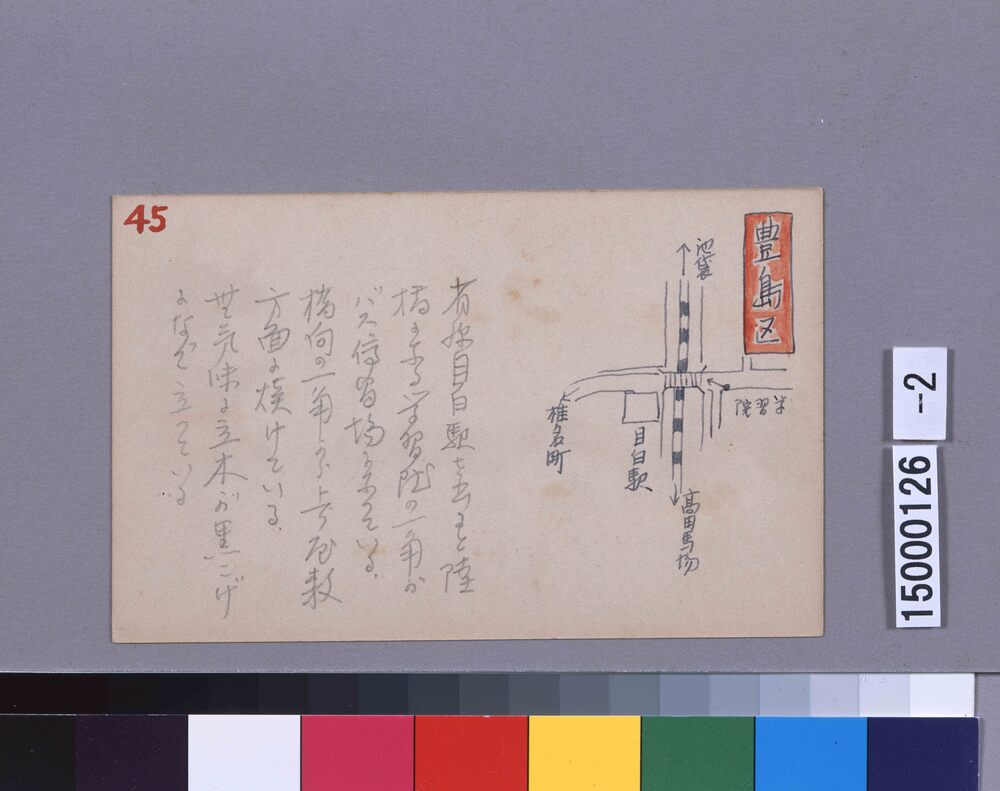 45
豊島区
池袋
学習院
椎名町
目白駅
高田馬場
省線目白駅を出ると陸
橋に 学習院の一角が
バス停留場になっている。
橋向の一角から上り屋敷
方面は焼けている。
無気味に立木が黒こげ
になって立っている
15000126
-2